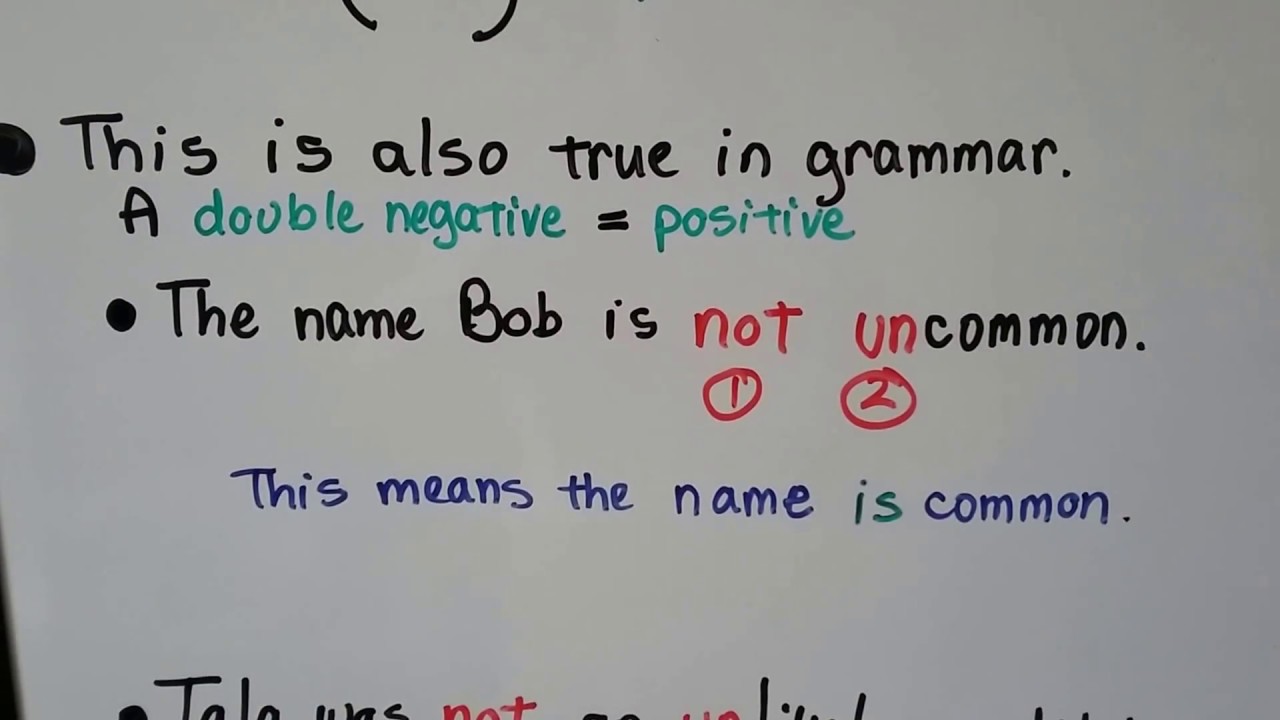 This is also true in grammar.
A double negative = positive
• The name Bob is not uncommon.
① ②
This means the name is common.
• not